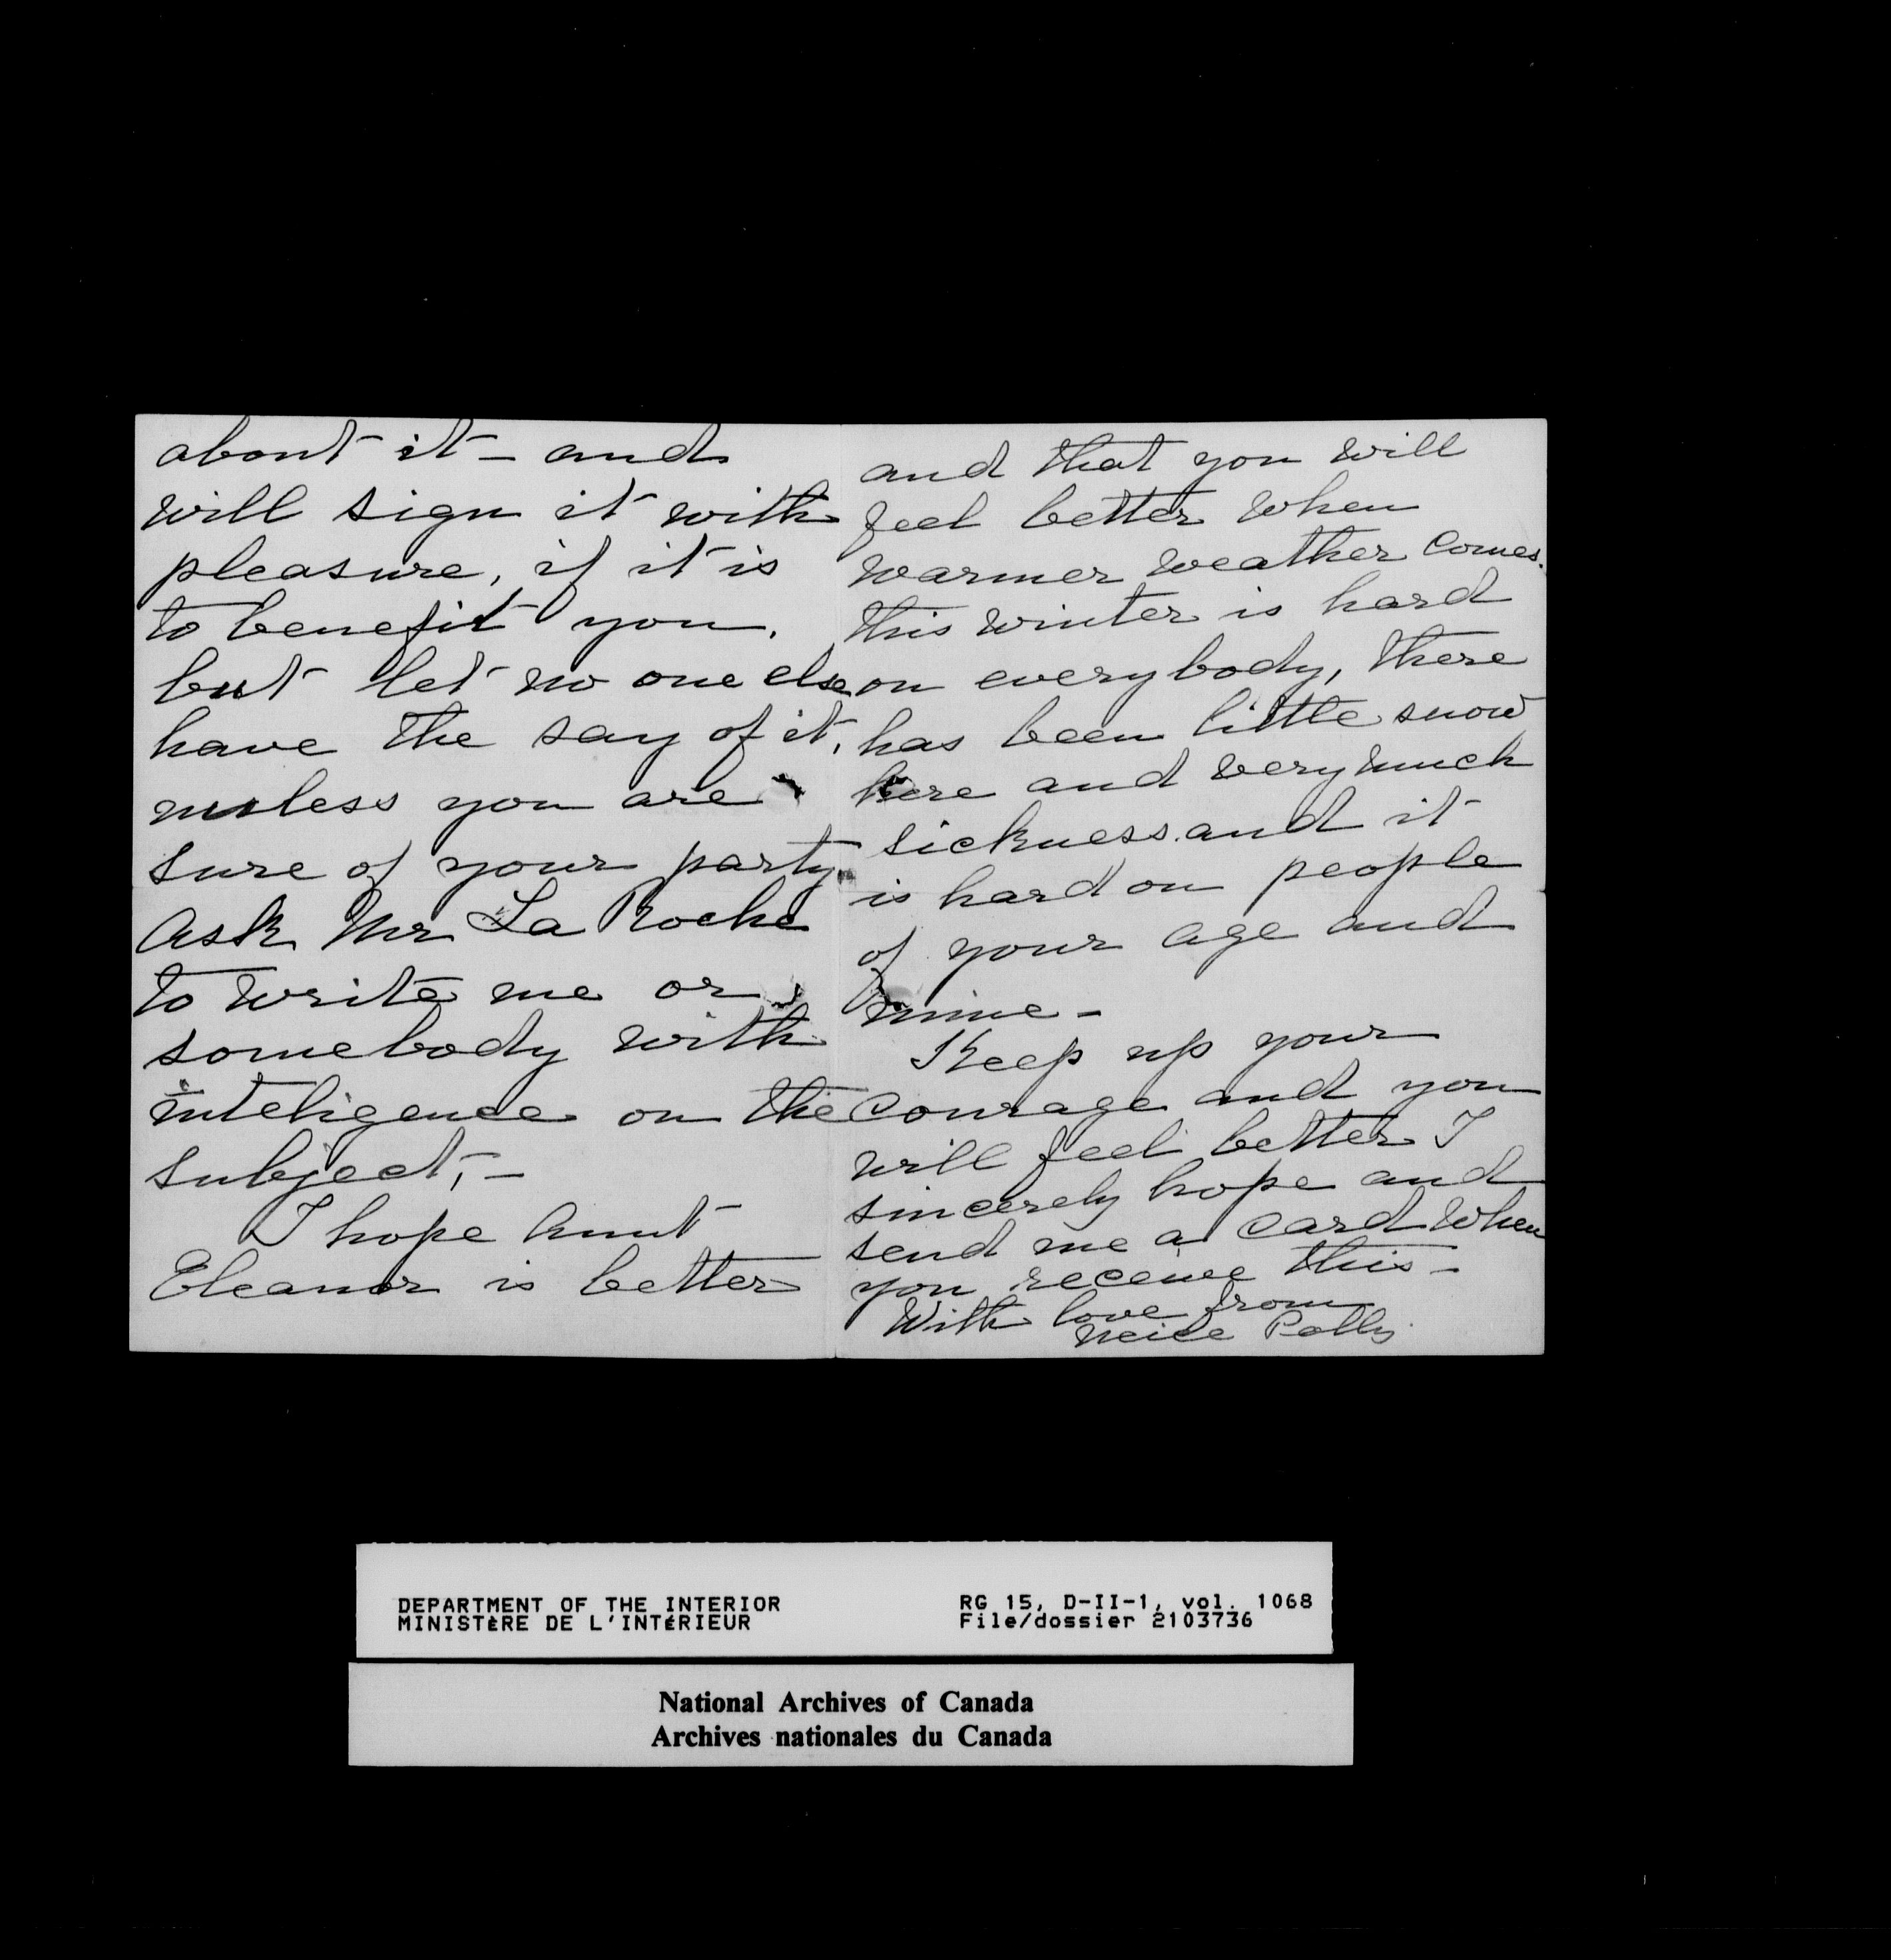 about it – and
will sign it with
pleasure, if it is
to benefit you.
but let no one else
have the say of it,
unless you are
sure of your party
Ask Mr La Roche
to write me or
somebody with
inteligence on the
subject, –
I hope Aunt
Eleanor is better
and that you will
feel better when
warmer weather comes.
this winter is hard
on everybody, there
has been little snow
here and very much
sickness. and it
is hard on people
of your age and
mine –
Keep up your
courage and you
will feel better I
sincerely hope and
send me a card when
you receive this –
With love from
Neice Polly
DEPARTMENT OF THE INTERIOR
MINISTÈRE DE L'INTÉRIEUR
RG 15, D-II-1, vol. 1068
File/dossier 2103736
National Archives of Canada
Archives nationales du Canada